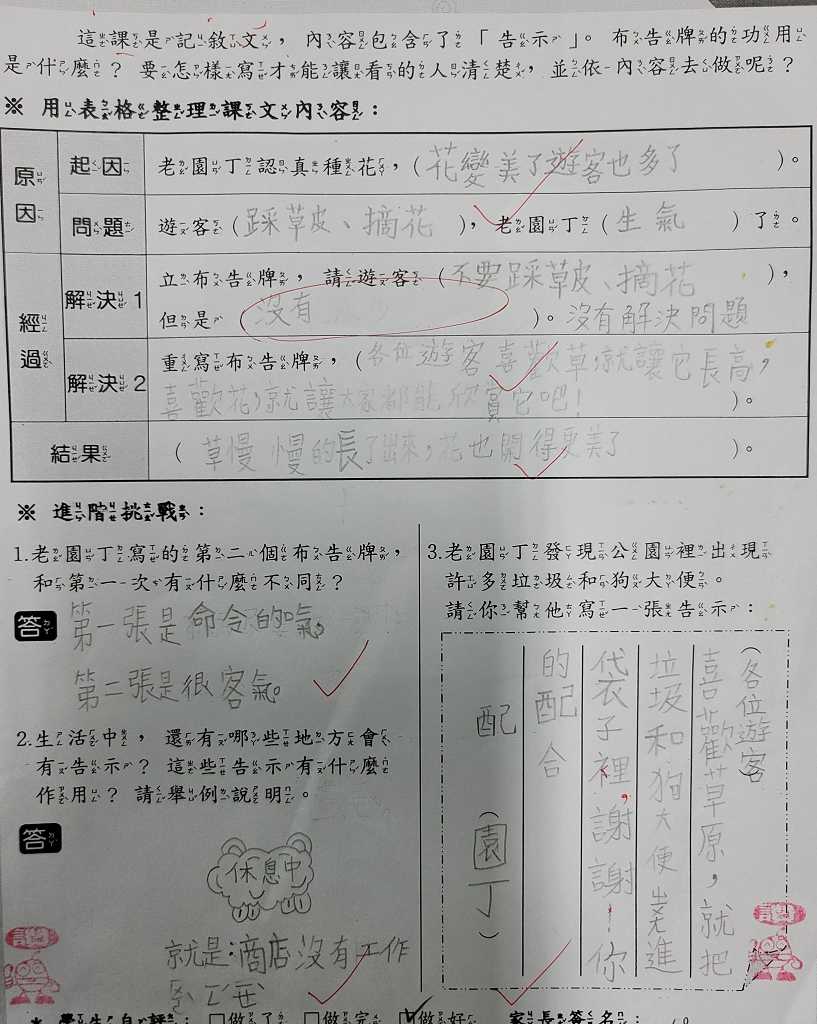 這課是記敘文，內容包含了「告示」。布告牌的功用
是什麼？要怎樣寫才能讓看的人清楚，並依內容去做呢？
※ 用表格整理課文內容：
原因
起因
老園丁認真種花，（花變美了遊客也多了）。
問題
遊客（踩草皮、摘花），老園丁（生氣）了。
經過
解決1
立布告牌，請遊客（不要踩草皮、摘花），
但是（沒有）。沒有解決問題
解決2
重寫布告牌，（各位遊客喜歡草，就讓它長高，
喜歡花，就讓大家都能欣賞它吧！）。
結果
（草慢慢的長了出來，花也開得更美了）。
※ 進階挑戰：
1.老園丁寫的第二個布告牌，
和第一次有什麼不同？
答
第一張是命令的口氣。
第二張是很客氣。
2.生活中，還有哪些地方會
有告示？這些告示有什麼
作用？請舉例說明。
答
休息中
就是：商店沒有工作
3.老園丁發現公園裡出現
許多垃圾和狗大便。
請你幫他寫一張告示：
（各位遊客）
喜歡草原，就把
垃圾和狗大便丟進
袋子裡，謝謝！你
的配合
配
（園丁）
＊學生自評：□做了 □做完 ☑做好 家長簽名：